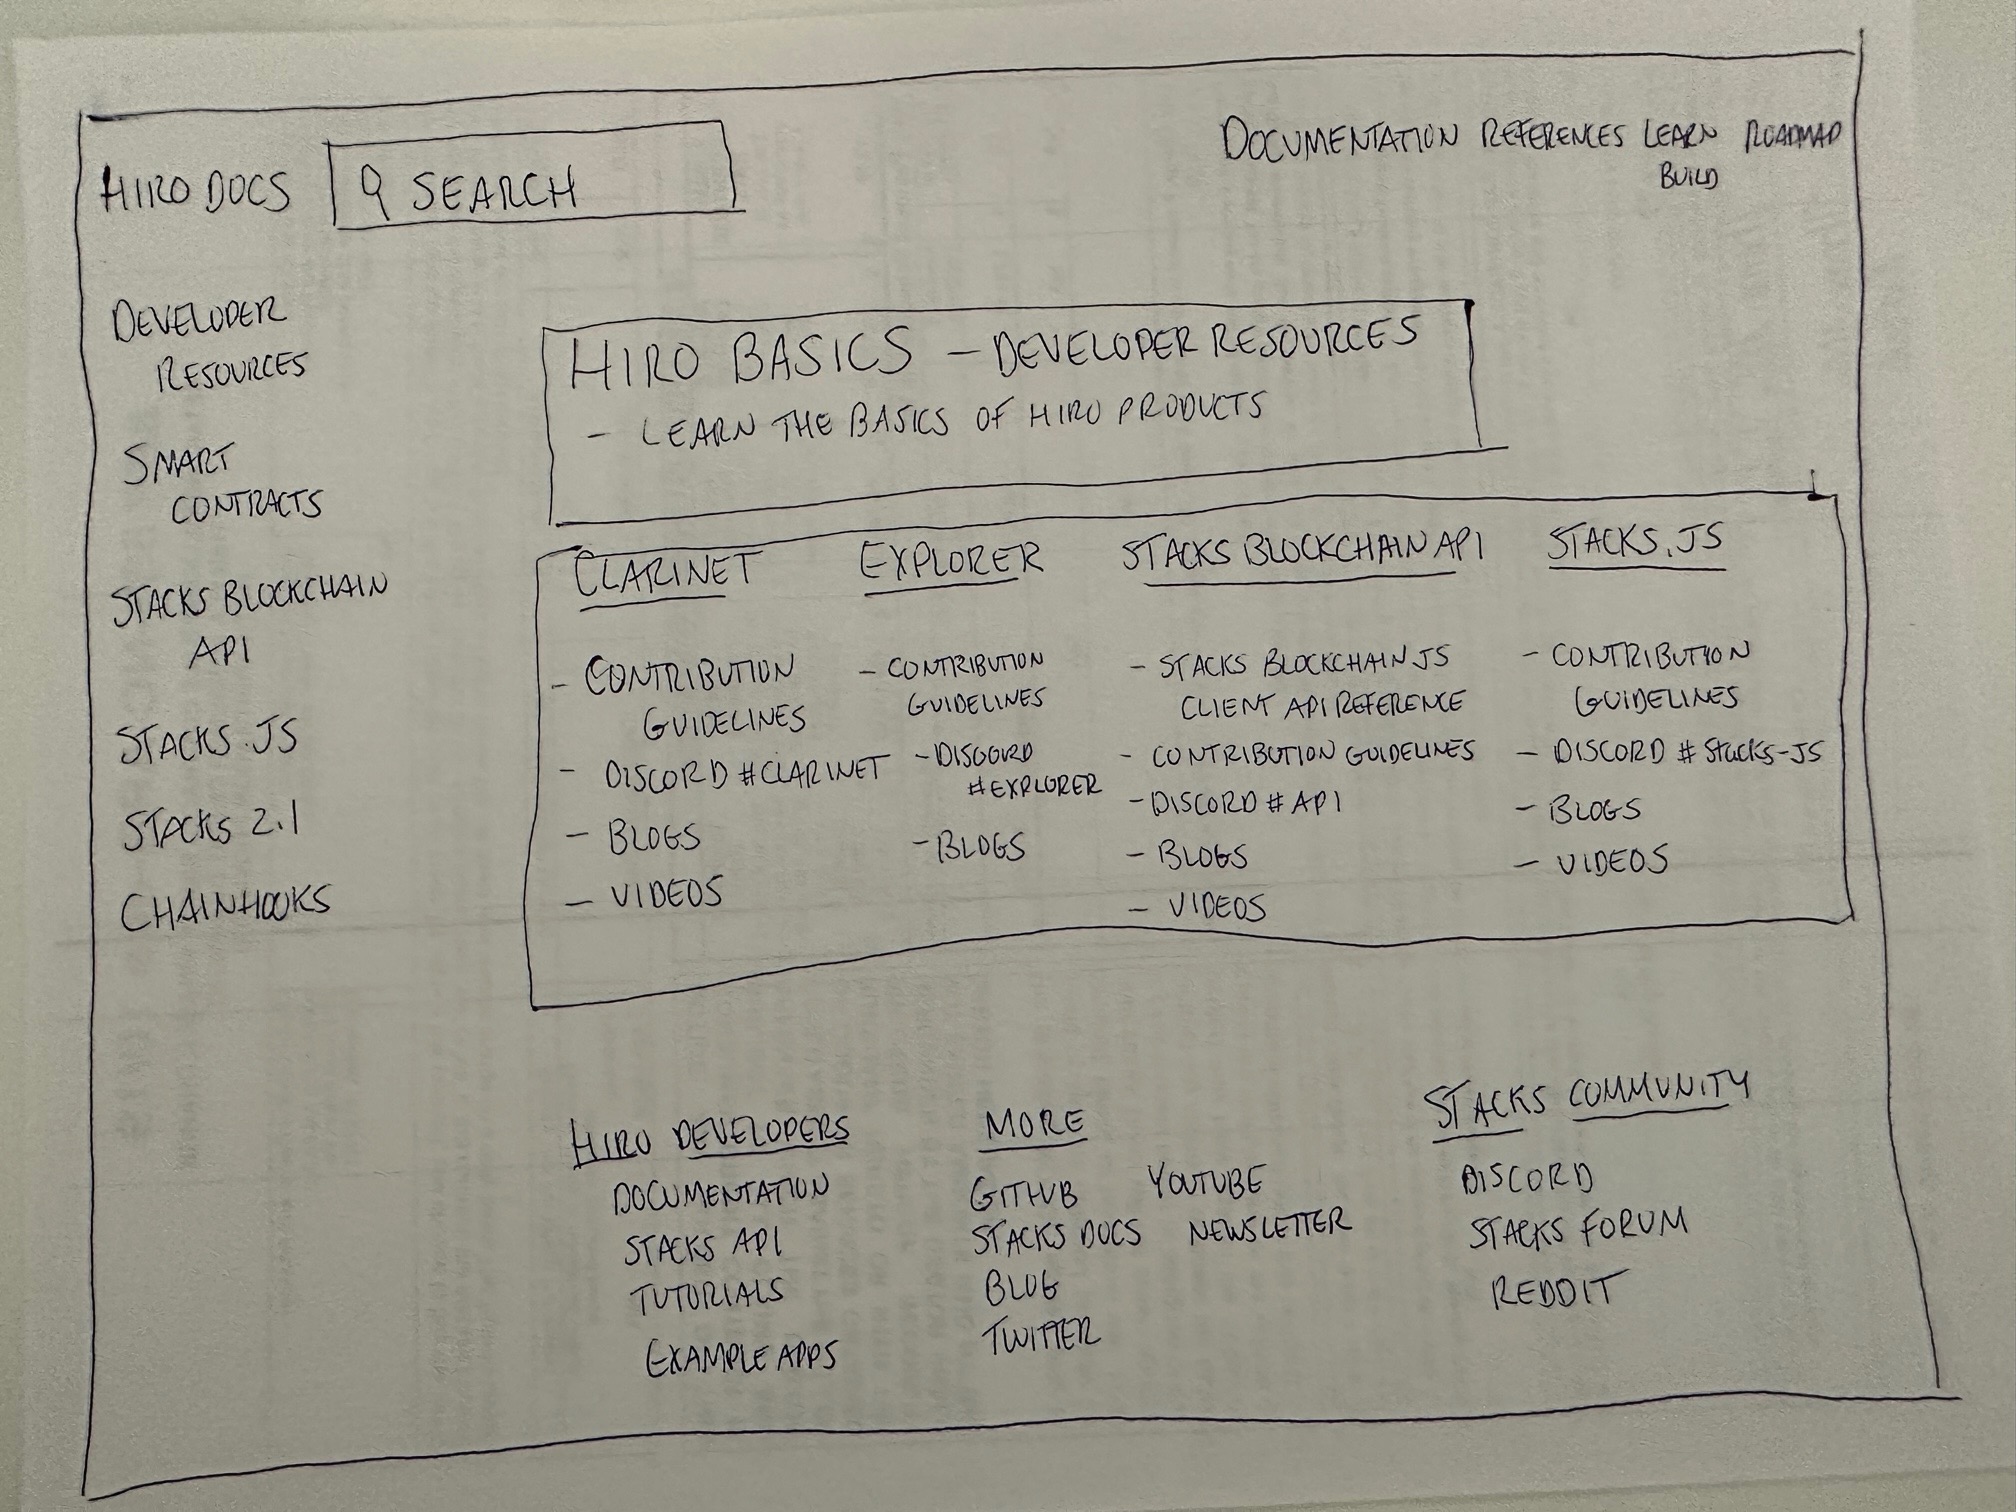 HIRO DOCS
SEARCH
DOCUMENTATION REFERENCES LEARN ROADMAP
BUILD
DEVELOPER
RESOURCES
SMART
CONTRACTS
STACKS BLOCKCHAIN
API
STACKS.JS
STACKS 2.1
CHAINHOOKS
HIRO BASICS – DEVELOPER RESOURCES
- LEARN THE BASICS OF HIRO PRODUCTS
CLARINET
- CONTRIBUTION
GUIDELINES
- DISCORD #CLARINET
- BLOGS
- VIDEOS
EXPLORER
- CONTRIBUTION
GUIDELINES
- DISCORD
#EXPLORER
- BLOGS
STACKS BLOCKCHAIN API
- STACKS BLOCKCHAIN JS
CLIENT API REFERENCE
- CONTRIBUTION GUIDELINES
- DISCORD #API
- BLOGS
- VIDEOS
STACKS.JS
- CONTRIBUTION
GUIDELINES
- DISCORD #STACKS-JS
- BLOGS
- VIDEOS
HIRO DEVELOPERS
DOCUMENTATION
STACKS API
TUTORIALS
EXAMPLE APPS
MORE
GITHUB YOUTUBE
STACKS DOCS NEWSLETTER
BLOG
TWITTER
STACKS COMMUNITY
DISCORD
STACKS FORUM
REDDIT